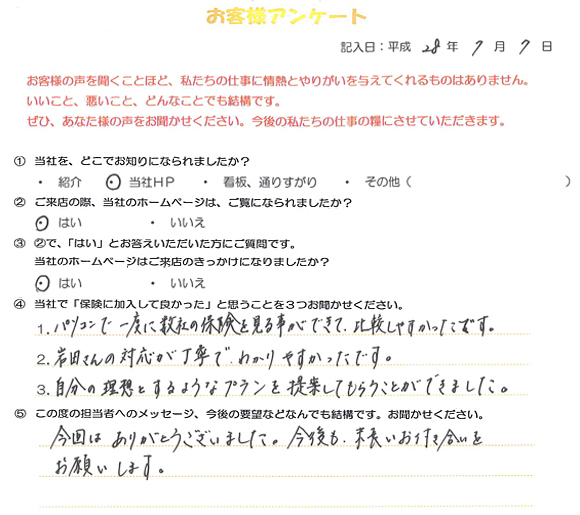 お客様アンケート
記入日：平成 28 年 7 月 7 日
お客様の声を聞くことほど、私たちの仕事に情熱とやりがいを与えてくれるものはありません。
いいこと、悪いこと、どんなことでも結構です。
ぜひ、あなた様の声をお聞かせください。今後の私たちの仕事の糧にさせていただきます。
① 当社を、どこでお知りになられましたか？
・ 紹介 ・ 当社HP ・ 看板、通りすがり ・ その他（ ）
② ご来店の際、当社のホームページは、ご覧になられましたか？
・ はい ・ いいえ
③ ②で、「はい」とお答えいただいた方にご質問です。
当社のホームページはご来店のきっかけになりましたか？
・ はい ・ いいえ
④ 当社で「保険に加入して良かった」と思うことを３つお聞かせください。
1. パソコンで一度に数社の保険を見る事ができて、比較しやすかったです。
2. 岩田さんの対応が丁寧で、わかりやすかったです。
3. 自分の理想とするようなプランを提案してもらうことができました。
⑤ この度の担当者へのメッセージ、今後の要望などなんでも結構です。お聞かせください。
今回はありがとうございました。今後も、末長いお付き合いを
お願いします。